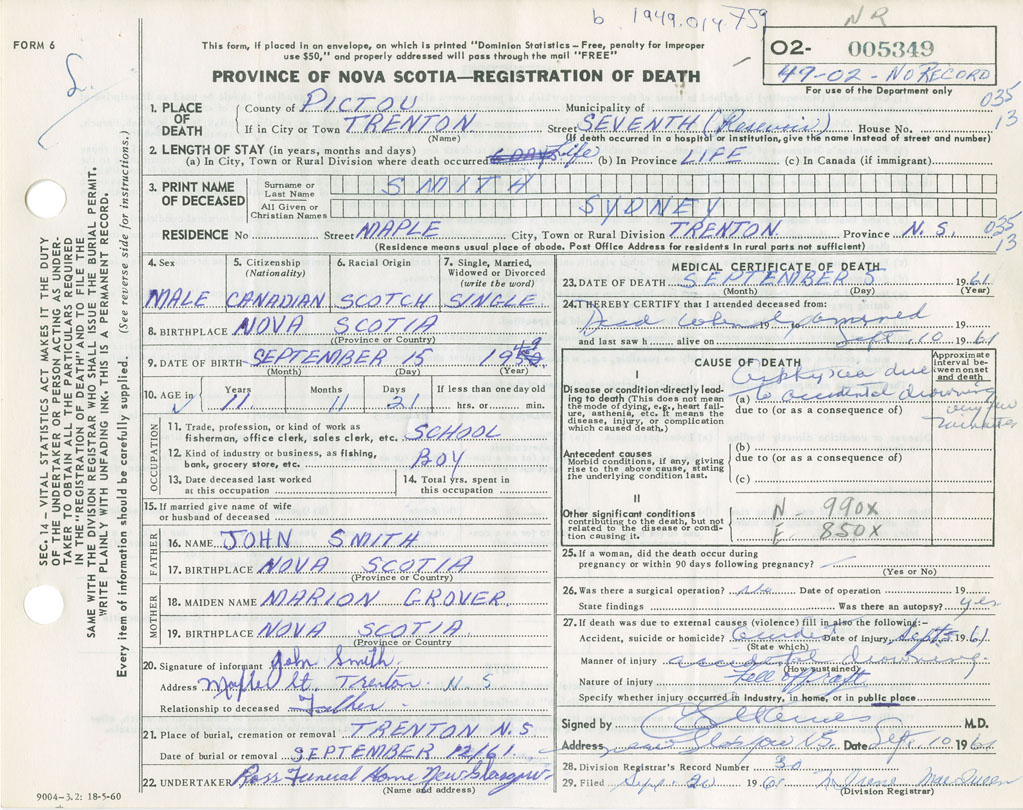 b 1949.014.759
NR
FORM 6
This form, if placed in an envelope, on which is printed "Dominion Statistics – Free, penalty for improper
use $50," and properly addressed will pass through the mail "FREE"
02- 005349
49-02 - NO RECORD
For use of the Department only
PROVINCE OF NOVA SCOTIA—REGISTRATION OF DEATH
035
13
1. PLACE OF DEATH
County of PICTOU Municipality of
If in City or Town TRENTON Street SEVENTH (Reservoir) House No.
(Name) (If death occurred in a hospital or institution, give the name instead of street and number)
2. LENGTH OF STAY (in years, months and days)
(a) In City, Town or Rural Division where death occurred 6 DAYS life (b) In Province LIFE (c) In Canada (if immigrant)
3. PRINT NAME OF DECEASED
Surname or Last Name SMITH
All Given or Christian Names SYDNEY
RESIDENCE No Street MAPLE City, Town or Rural Division TRENTON Province N.S.
035
13
(Residence means usual place of abode. Post Office Address for residents in rural parts not sufficient)
4. Sex 5. Citizenship (Nationality) 6. Racial Origin 7. Single, Married, Widowed or Divorced (write the word)
MALE CANADIAN SCOTCH SINGLE
8. BIRTHPLACE NOVA SCOTIA
(Province or Country)
9. DATE OF BIRTH SEPTEMBER 15 1949
(Month) (Day) (Year)
10. AGE in Years Months Days If less than one day old
11 11 21 hrs. or min.
OCCUPATION
11. Trade, profession, or kind of work as
fisherman, office clerk, sales clerk, etc. SCHOOL
12. Kind of industry or business, as fishing,
bank, grocery store, etc. BOY
13. Date deceased last worked at this occupation 14. Total yrs. spent in this occupation
15. If married give name of wife
or husband of deceased
FATHER
16. NAME JOHN SMITH
17. BIRTHPLACE NOVA SCOTIA
(Province or Country)
MOTHER
18. MAIDEN NAME MARION GROVER
19. BIRTHPLACE NOVA SCOTIA
(Province or Country)
20. Signature of informant John Smith
Address Maple St. Trenton N.S
Relationship to deceased Father
21. Place of burial, cremation or removal TRENTON N.S.
Date of burial or removal SEPTEMBER 12/61
22. UNDERTAKER Ross Funeral Home New Glasgow
(Name and address)
MEDICAL CERTIFICATE OF DEATH
23. DATE OF DEATH SEPTEMBER 5 1961
(Month) (Day) (Year)
24. I HEREBY CERTIFY that I attended deceased from:
Dead when examined 19 to 19
and last saw h alive on Sept. 10 1961
CAUSE OF DEATH
Approximate interval between onset and death
I
Disease or condition directly leading to death (This does not mean the mode of dying, e.g., heart failure, asthenia, etc. It means the disease, injury, or complication which caused death.)
Asphyxia due
(a) to accidental drowning
due to (or as a consequence of)
very few
minutes
Antecedent causes
Morbid conditions, if any, giving rise to the above cause, stating the underlying condition last.
(b)
due to (or as a consequence of)
(c)
II
Other significant conditions
contributing to the death, but not related to the disease or condition causing it.
N - 990X
E - 850X
25. If a woman, did the death occur during
pregnancy or within 90 days following pregnancy?
(Yes or No)
26. Was there a surgical operation? no Date of operation 19
State findings Was there an autopsy? yes
27. If death was due to external causes (violence) fill in also the following:–
Accident, suicide or homicide? accident Date of injury Sept 5 1961
(State which)
Manner of injury accidental drowning
(How sustained)
Nature of injury Fell off raft
Specify whether injury occurred in Industry, in home, or in public place
Signed by M.D.
Address New Glasgow N.S. Date Sept. 10 1961
28. Division Registrar's Record Number 30
29. Filed Sept. 20 1961 Irene MacQueen
(Division Registrar)
SEC. 14 – VITAL STATISTICS ACT MAKES IT THE DUTY
OF THE UNDERTAKER OR PERSON ACTING AS UNDER-
TAKER TO OBTAIN ALL THE PARTICULARS REQUIRED
IN THE "REGISTRATION OF DEATH" AND TO FILE THE
SAME WITH THE DIVISION REGISTRAR WHO SHALL ISSUE THE BURIAL PERMIT.
WRITE PLAINLY WITH UNFADING INK. THIS IS A PERMANENT RECORD.
Every item of information should be carefully supplied. (See reverse side for instructions.)
9004-3.2: 18-5-60